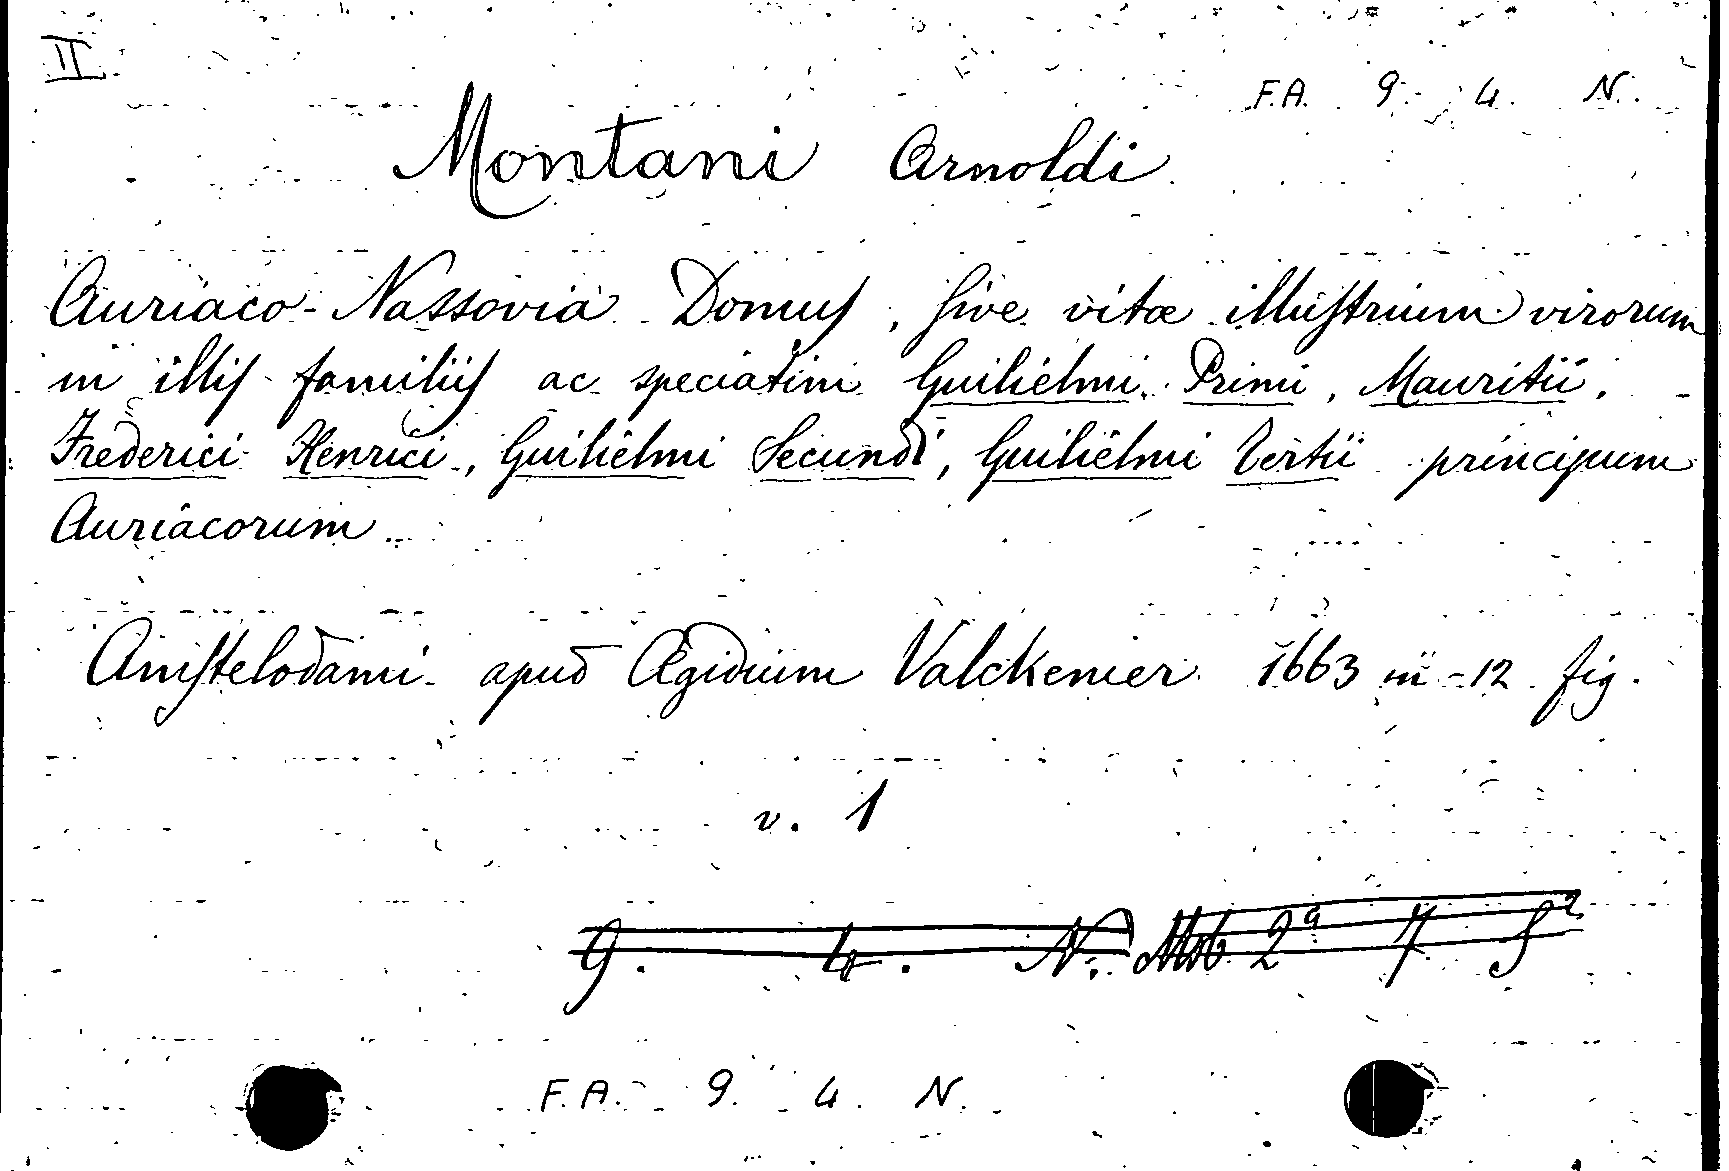 II
F.A. 9. 4. N.
Montani Arnoldi
Auriaco-Nassovia Domus, sive vitæ illustrium virorum
in illis familiis ac speciatim Guilielmi Primi, Mauritii,
Frederici Henrici, Guilielmi Secundi, Guilielmi Tertii principum
Auriacorum
Amstelodami apud Ægidium Valckenier 1663 in-12 fig.
v. 1
9. 4. N. 2ª
F.A. 9. 4. N.